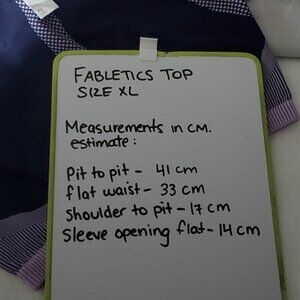 FABLETICS TOP
SIZE XL
Measurements in CM.
estimate:
Pit to pit - 41 cm
flat waist - 33 cm
Shoulder to pit - 17 cm
Sleeve opening flat - 14 cm